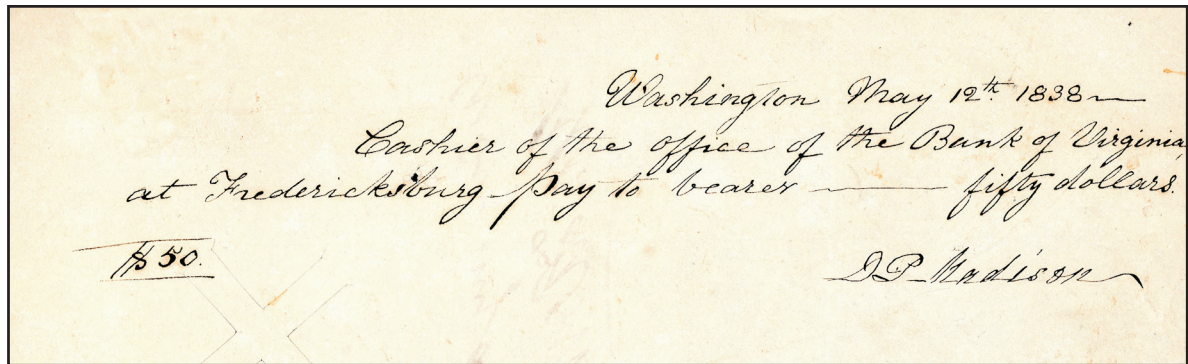 Washington May 12th. 1838—
Cashier of the office of the Bank of Virginia,
at Fredericksburg pay to bearer —— fifty dollars.
$50.
D P Madison